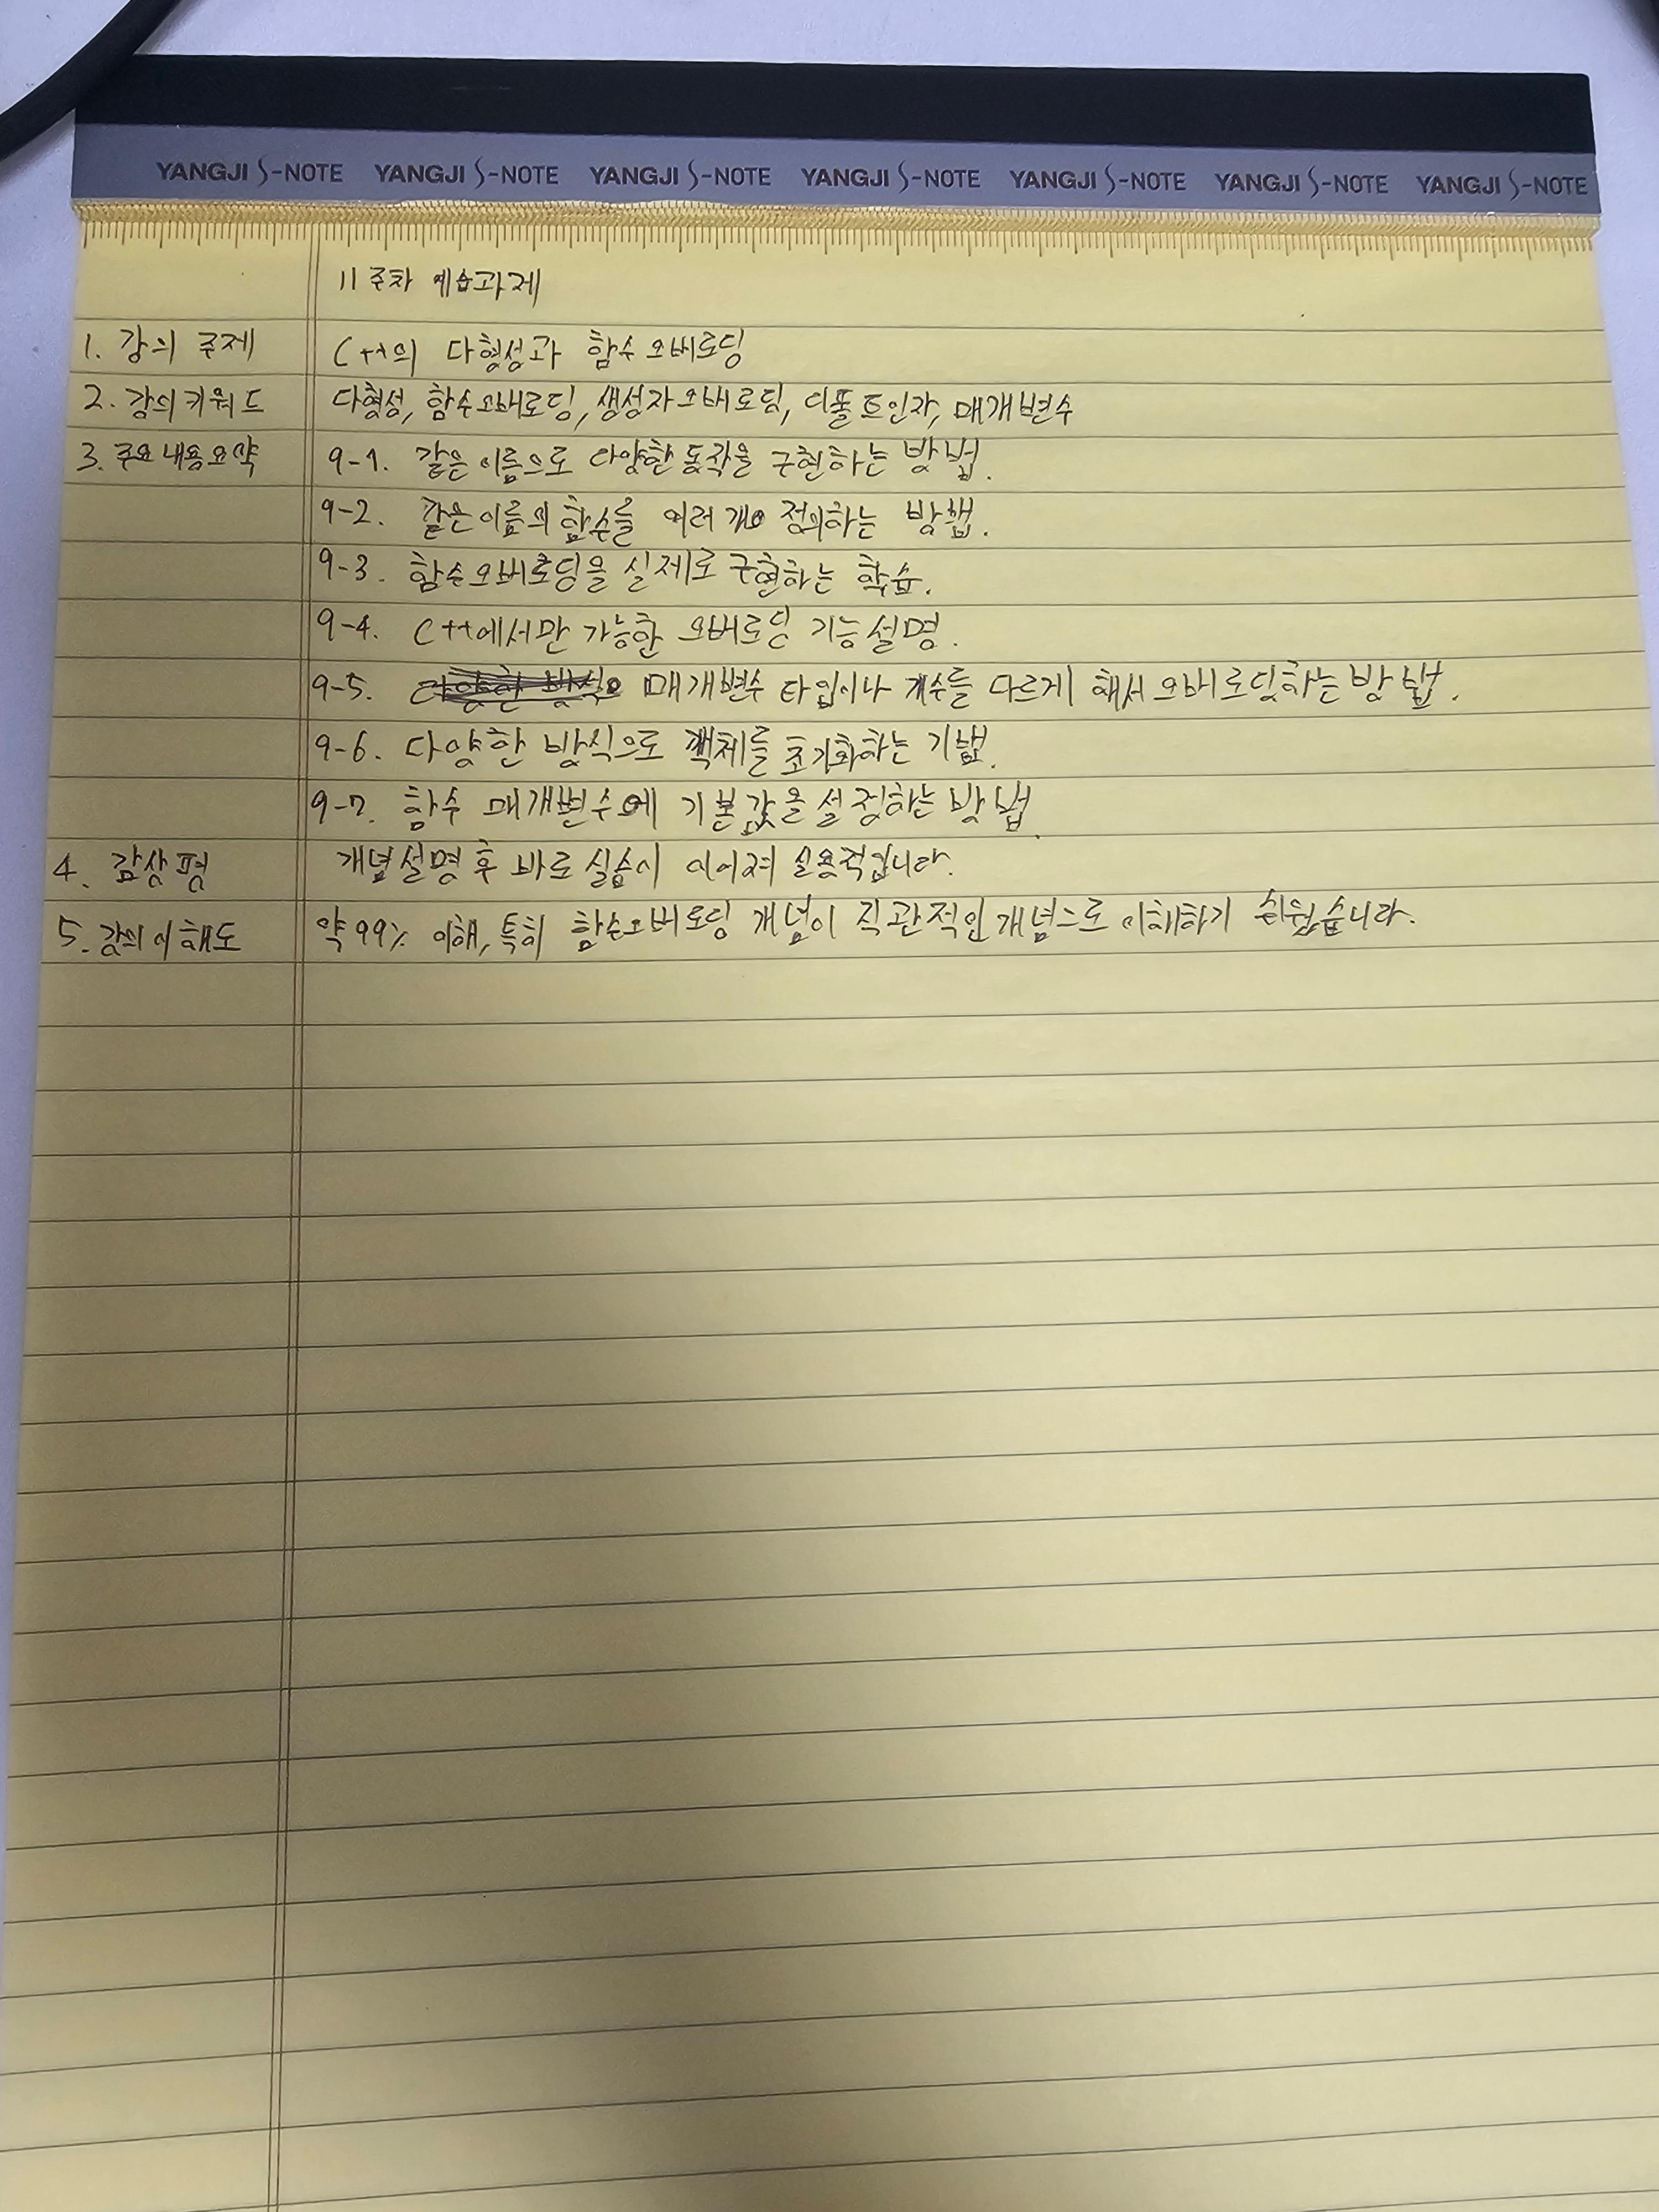 YANGJI S-NOTE YANGJI S-NOTE YANGJI S-NOTE YANGJI S-NOTE YANGJI S-NOTE YANGJI S-NOTE YANGJI S-NOTE
11주차 예습과제
1. 강의 주제 C++의 다형성과 함수 오버로딩
2. 강의키워드 다형성, 함수오버로딩, 생성자오버로딩, 디폴트인자, 매개변수
3. 주요내용요약 9-1. 같은 이름으로 다양한 동작을 구현하는 방법.
9-2. 같은 이름의 함수를 여러 개 정의하는 방법.
9-3. 함수오버로딩을 실제로 구현하는 학습.
9-4. C++에서만 가능한 오버로딩 기능 설명.
9-5. 매개변수 타입이나 개수를 다르게 해서 오버로딩하는 방법.
9-6. 다양한 방식으로 객체를 초기화하는 기법.
9-7. 함수 매개변수에 기본값을 설정하는 방법.
4. 감상평 개념설명 후 바로 실습이 이어져 실용적입니다.
5. 강의이해도 약 99% 이해, 특히 함수오버로딩 개념이 직관적인 개념으로 이해하기 쉬웠습니다.